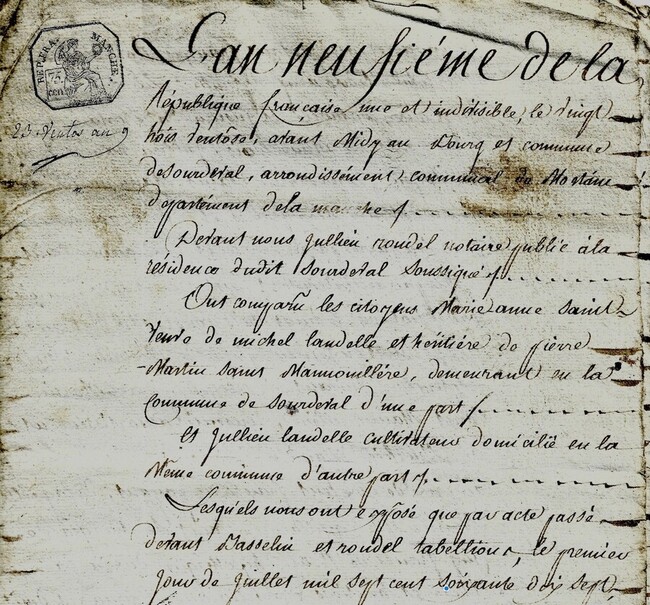 REP. FRA.
MANCHE.
75
cen.
23 Ventos an 9
L'an neufiéme de la
République française une et indivisible, le vingt
trois ventôse, avant Midy au Bourg et commune
de sourdeval, arrondissément communal de Mortain
departement de la manche /.
Devant nous jullien rondel notaire public à la
résidence dudit sourdeval soussigné /.
Ont comparu les citoyens Marie anne saint
veuve de michel landelle et héritiére de pierre
Martin saint, demeurant en la
commune de sourdeval d'une part /.
Et jullien landelle cultivateur domicilié en la
Même commune d'autre part /.
Lesquels nous ont exposé que par acte passé
devant Vasselin et rondel tabellions, le premier
jour de juillet mil sept cent soixante dix sept